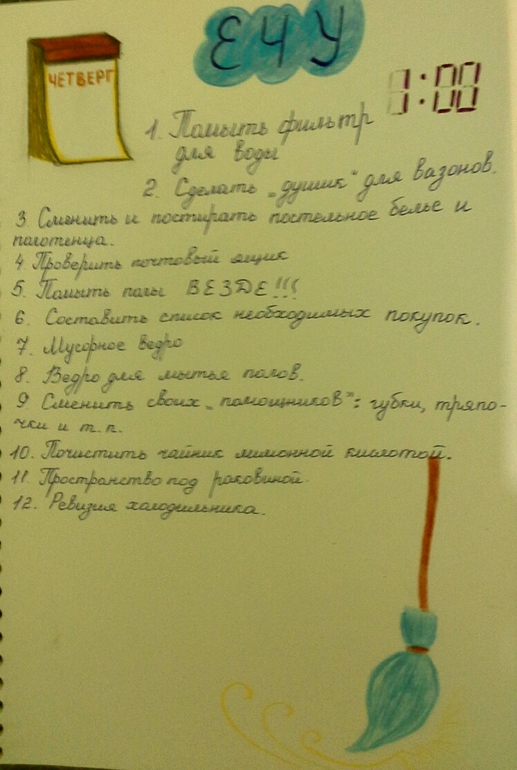 ЕЧУ
ЧЕТВЕРГ
1:00
1. Помыть фильтр
для воды
2. Сделать „душик“ для вазонов.
3. Сменить и постирать постельное белье и
полотенца.
4. Проверить почтовый ящик
5. Помыть полы ВЕЗДЕ!!!
6. Составить список необходимых покупок.
7. Мусорное ведро
8. Ведро для мытья полов.
9 Сменить своих „помощников“: губки, тряпо-
чки и т.п.
10. Почистить чайник лимонной кислотой.
11. Пространство под раковиной.
12. Ревизия холодильника.